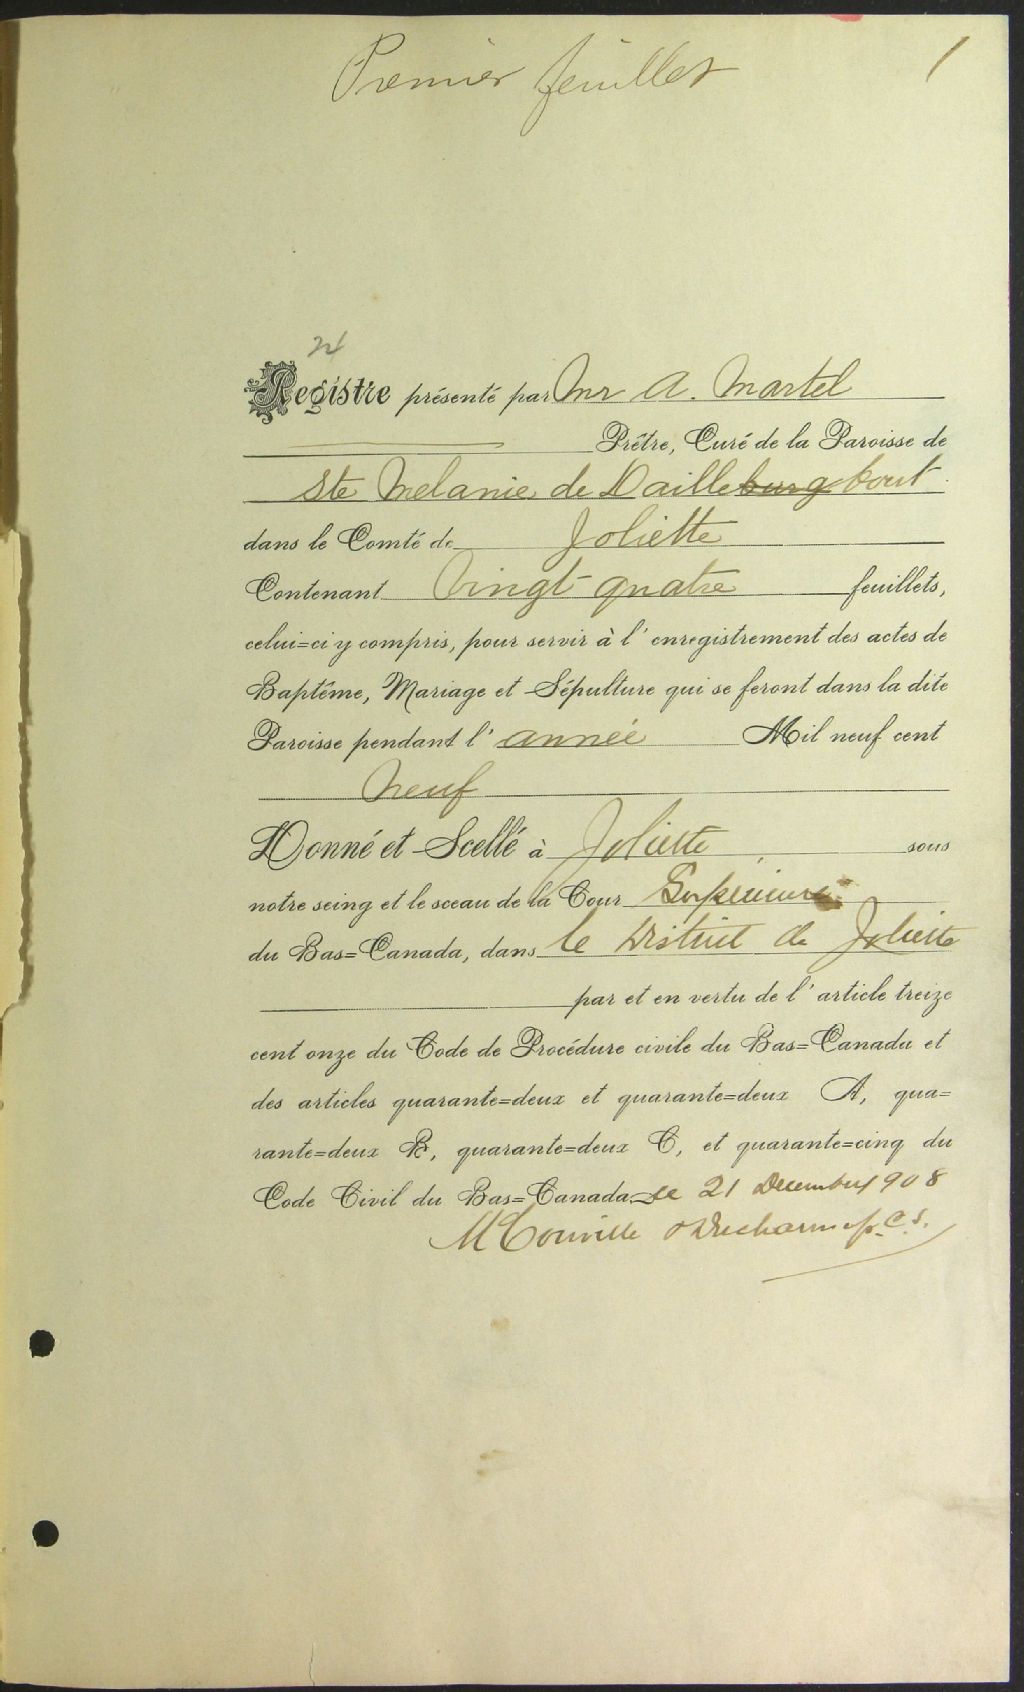 Premier feuillet 1
24
Registre présenté par Mr A. Martel
Prêtre, Curé de la Paroisse de
Ste Melanie de Dailleburgbout
dans le Comté de Joliette
Contenant Vingt-quatre feuillets,
celui=ci y compris, pour servir à l'enregistrement des actes de
Baptême, Mariage et Sépulture qui se feront dans la dite
Paroisse pendant l'année Mil neuf cent
Neuf
Donné et Scellé à Joliette sous
notre seing et le sceau de la Cour Supérieure
du Bas=Canada, dans le District de Joliette
par et en vertu de l'article treize
cent onze du Code de Procédure civile du Bas=Canada et
des articles quarante=deux et quarante=deux A, qua=
rante=deux B, quarante=deux C, et quarante=cinq du
Code Civil du Bas=Canada, ce 21 Decembre 1908
p.c.s.